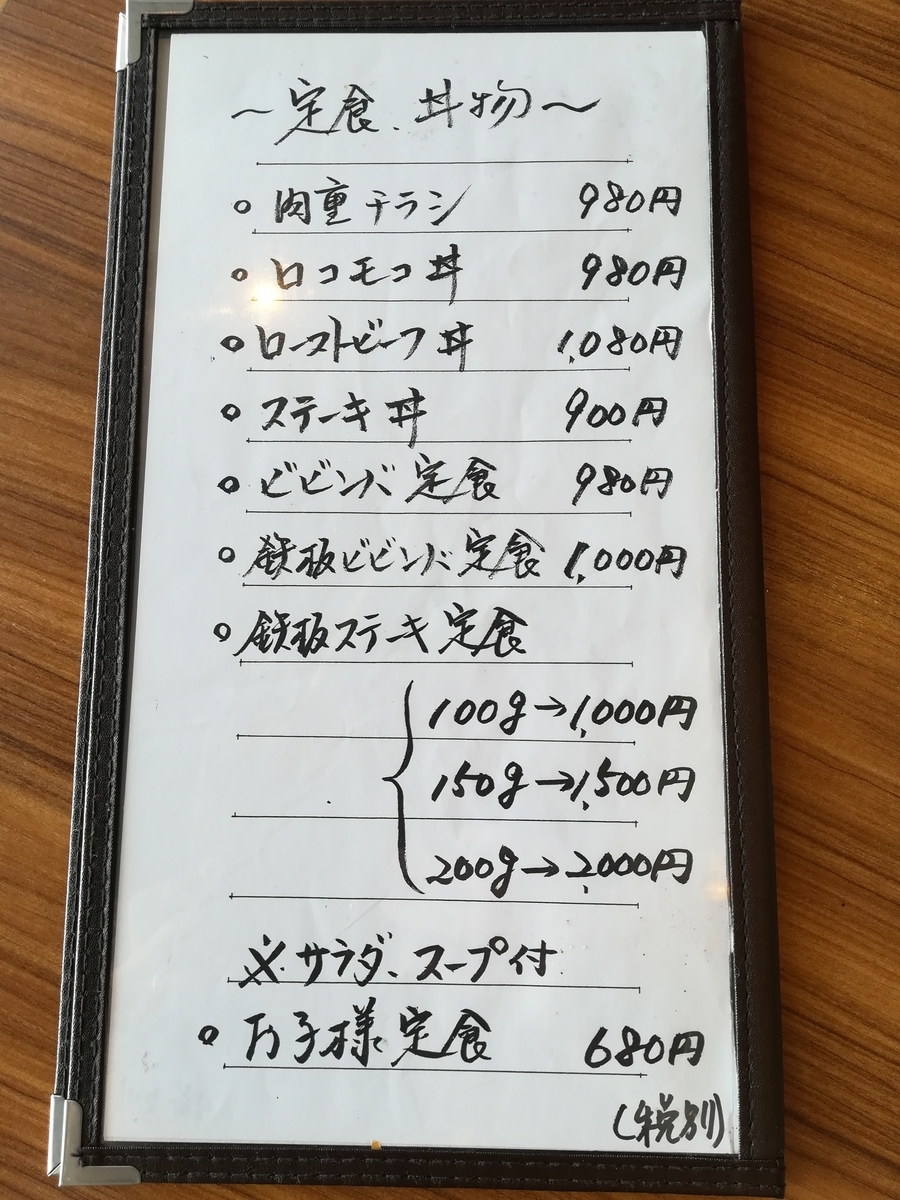 ～定食、丼物～
○肉重チラシ 980円
○ロコモコ丼 980円
○ローストビーフ丼 1,080円
○ステーキ丼 900円
○ビビンバ定食 980円
○鉄板ビビンバ定食 1,000円
○鉄板ステーキ定食
100g→1,000円
150g→1,500円
200g→2,000円
※サラダ、スープ付
○お子様定食 680円
(税別)